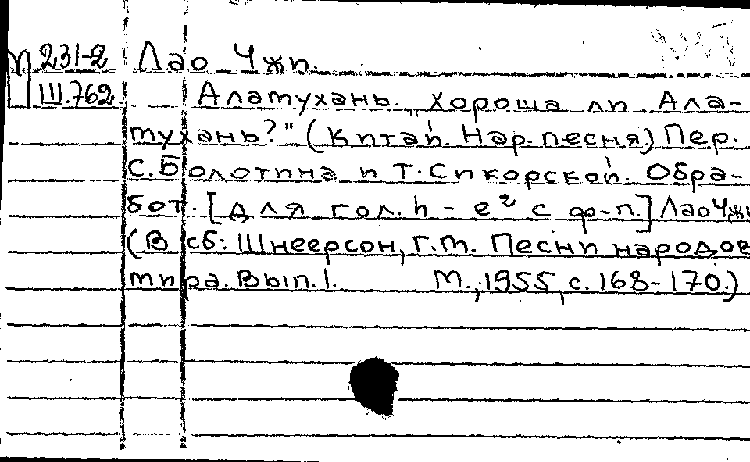 М 231-2 Лао Чжи.
III.762. Алатухань. „Хороша ли Ала-
тухань?" (Китай. Нар. песня) Пер.
С. Болотина и Т. Сикорской. Обра-
бот. [Для гол. h - e² с ф-п.] Лао Чжи
(В сб: Шнеерсон, Г.М. Песни народов
мира. Вып. I. М., 1955, с. 168-170.)